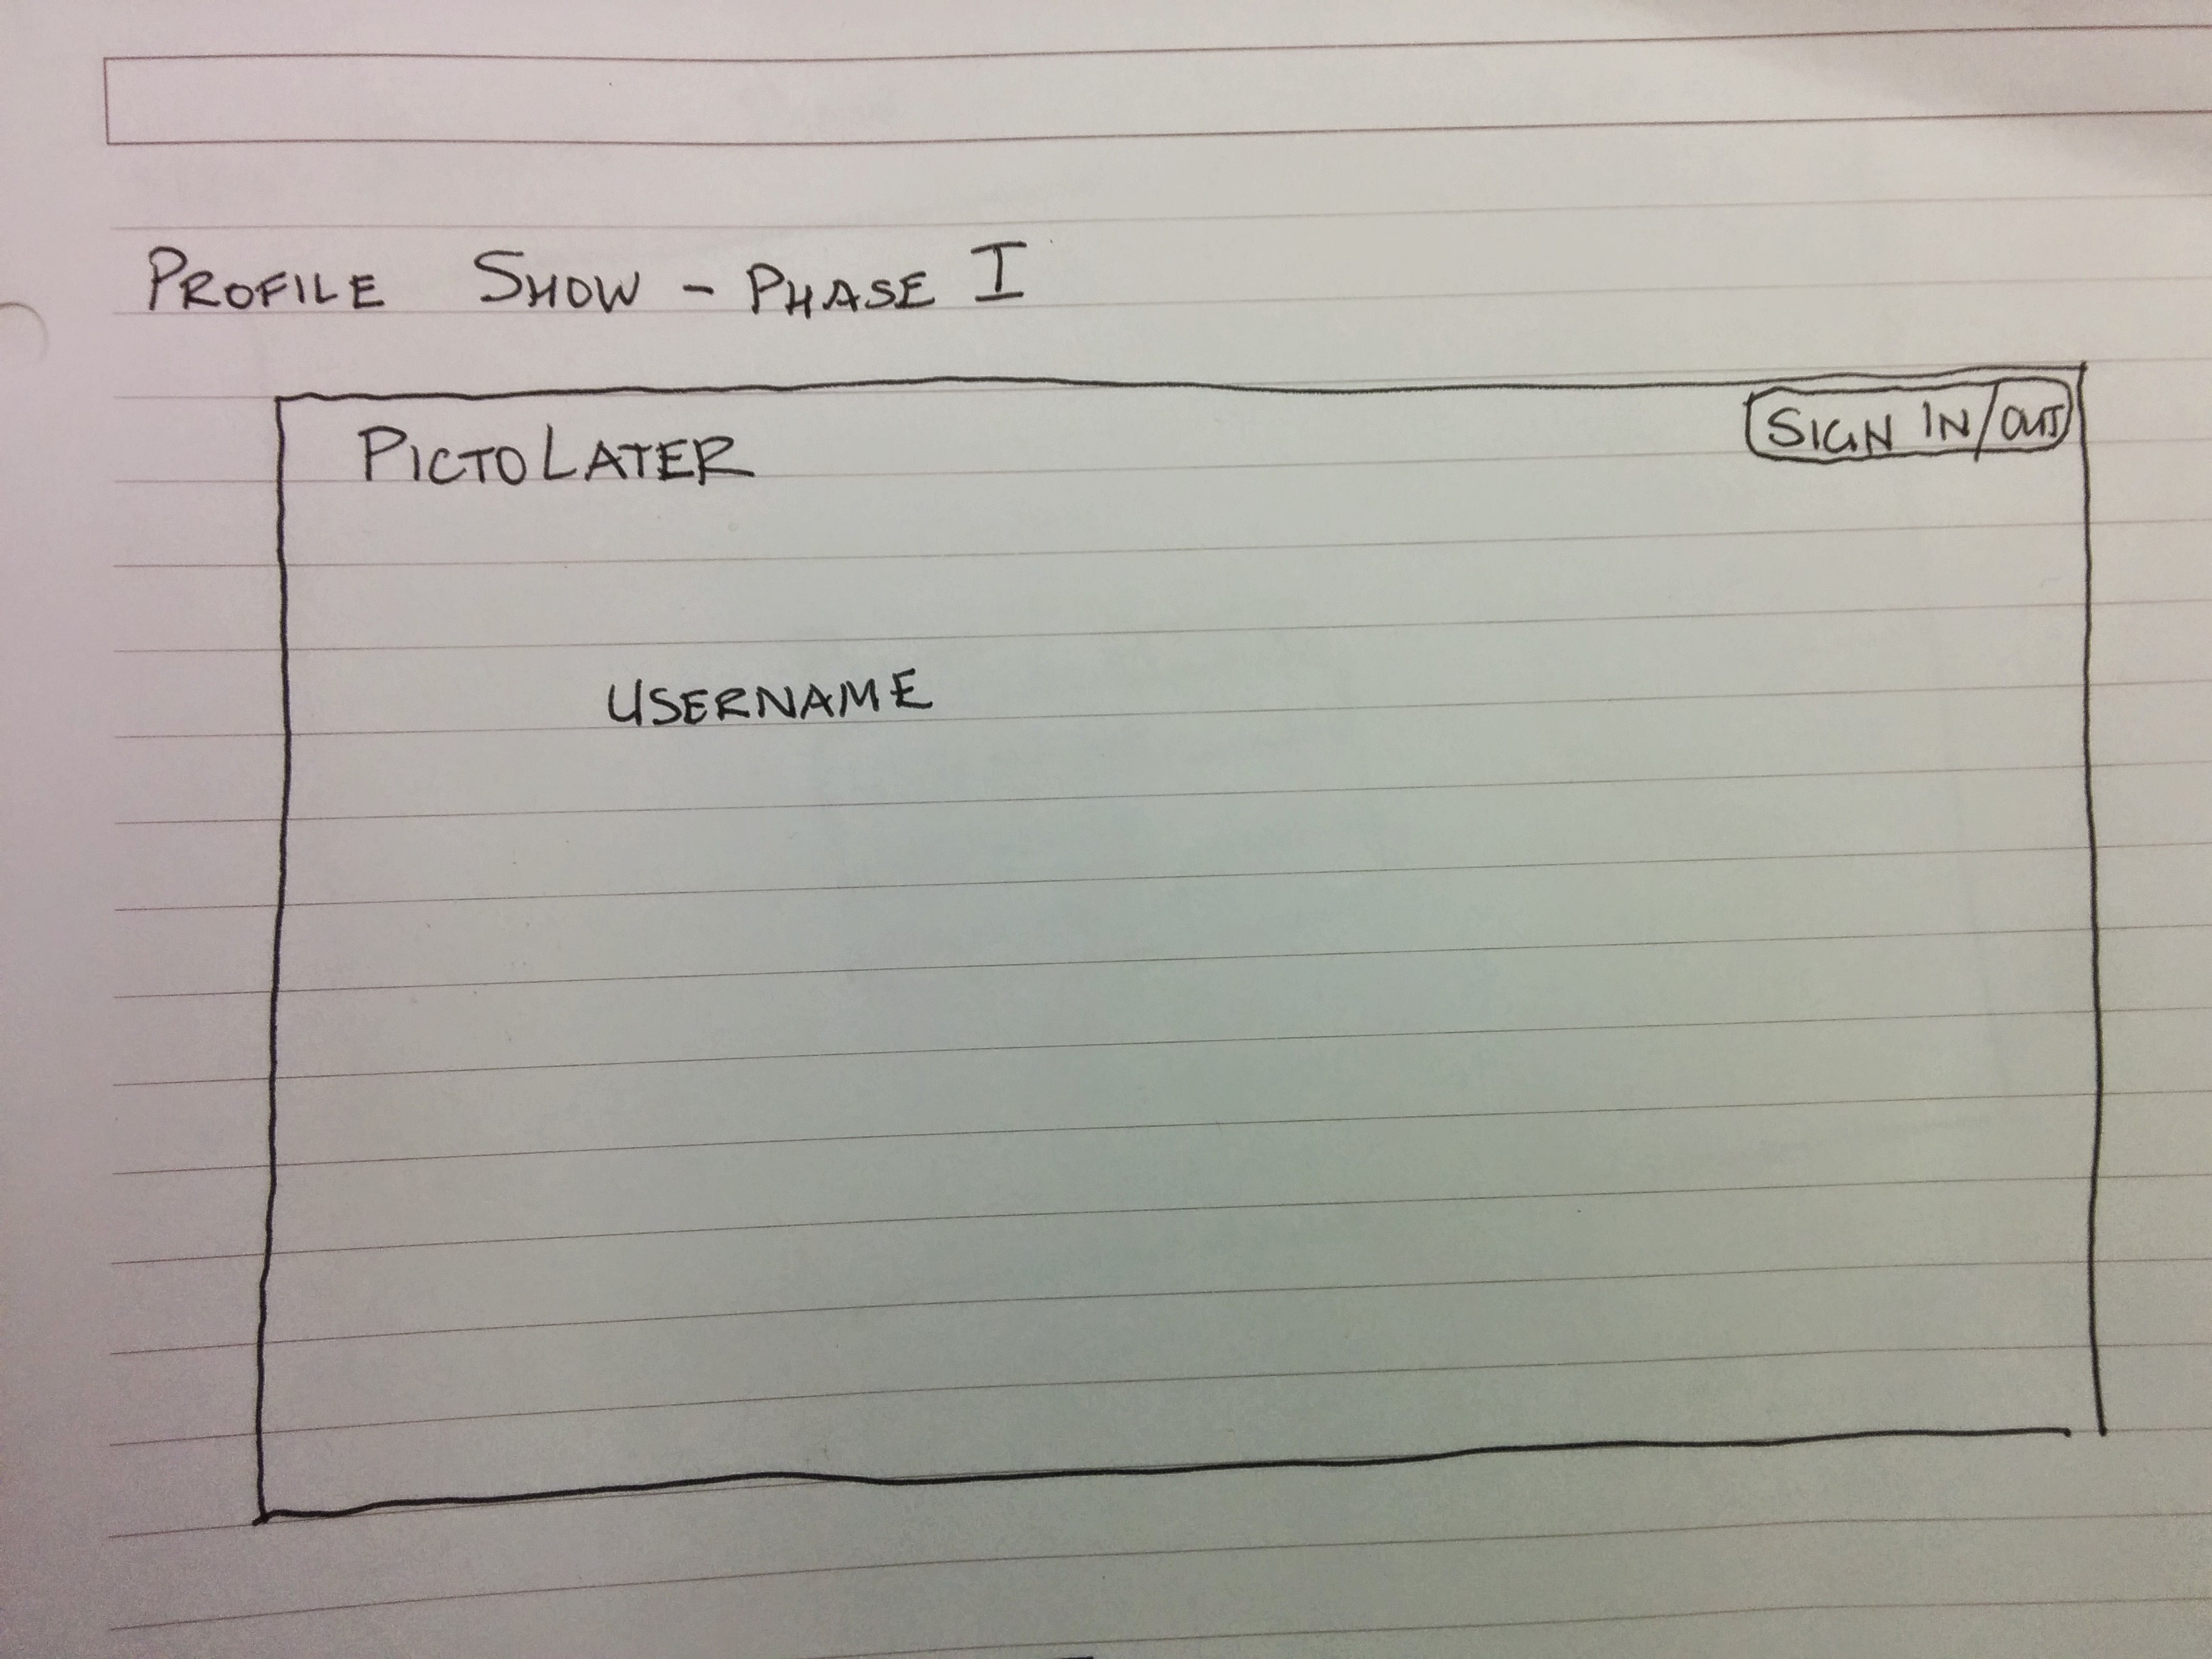 PROFILE SHOW - PHASE I
PICTOLATER
SIGN IN/OUT
USERNAME